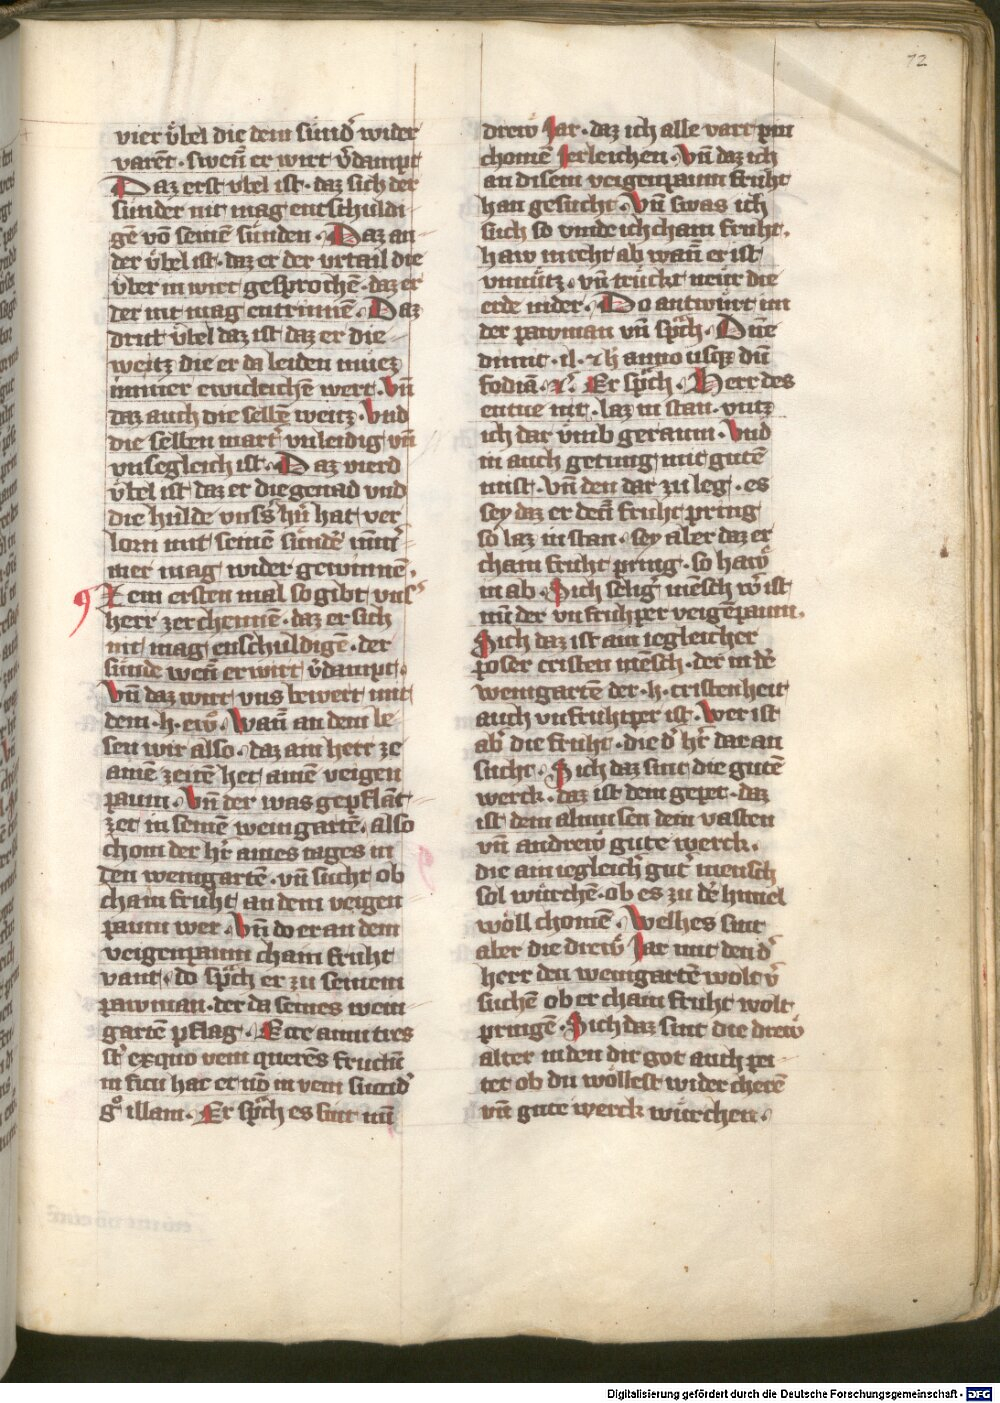 72
vier v̈bel die dem sünd̾ wider
varēt · Swen̄ er wirt v̾dampt
Daz erst vbel ist · daz sich der
sünder nit mag entschuldi
gē vō seinē sünden · Daz an
der v̈bel ist · daz er der vrtail die
v̈ber in wirt gesprochē · daz er
der nit mag entrinnē · Daz
dritt v̈bel daz ist daz er die
weitz die er da leiden muez
immer ewicleichē wert · Vn̄
daz auch die selbē weitz · Vnd
die selben mart̾ vnleidig vn̄
vnsegleich ist · Daz vierd
v̈bel ist daz er die genad vnd
die hulde vns̾s h̾rn hat ver
lorn mit seinē sündē nim̄
mer mag wider gewinnē ·
Zem ersten mal so gibt vns̾
herr ze erchennē · daz er sich
nit mag enschuldigē · der
sünde wen̄ er wirt v̾dampt ·
Vn̄ daz wirt vns bewert mit
dem · h · ew̄ · Wan̄ an dem le
sen wir also · daz ain herr ze
ainē zeitē het ainē veigen
paum · Vn̄ der was gepflāt
zet in seinē weingartē · also
chom der h̾r aines tages in
den weingartē · vn̄ sucht ob
chain fruht an dem veigen
paum wer · Vn̄ do er an dem
veigenpaum chain fruht
vant · do sp̾ch er zu seinem
pawman · der da seines wein
gartē pflag · Ecce anni tres
st̄ exquo veni querēs fructū
in ficu hac et nō inveni succid̾
gͦ illam · Er sp̾ch es sint nu̅
drew Jar · daz ich alle vart pin
chomē Jerleichen · Vn̄ daz ich
an disem veigenpaum fruht
han gesucht · Vn̄ swas ich
such so vinde ich chain fruht ·
haw in reht ab wan̄ er ist
vnnütz · vn̄ trückt neür die
erde nider · Do antwurt im
der pawman vn̄ sp̾ch · Dn̄e
dimit · il · &h anno usq̄z dū
fodiā · &c̾ · Er sp̾ch · Herr des
entue nit · laz in stan · vntz
ich dar vmb geraum · Vnd
in auch getung mit gutē
mist · vn̄ den dar zu leg · es
sey daz er den̄ fruht pring
so laz in stan · sey aber daz er
chain fruht pring · so haw̾
in ab · Sich selig̾ mēsch w̾ ist
nu̅ der vnfruhtper veigēpaum ·
Sich daz ist ain iegleicher
poser cristen mēsch · der in d̾
weingartē der · h · cristenheit
auch vnfruhtper ist · Wer ist
ab̾ die fruht · die d̾ h̾r dar an
sucht · Sich daz sint die gutē
werck · daz ist dein gepet · daz
ist dein almusen dein vasten
vn̄ andrew gute werck ·
die ain iegleich̾ gut̾ mensch
sol würchē · ob es zu d̾ himel
wöll chomē · Welhes sint
aber die drew Jar mit den d̾
herr den weingartē wolt v̾
suchē ob er chain fruht wolt
pringē · Sich daz sint die drew
alter in den dir got auch pei
tet ob du wöllest wider cherē
vn̄ gute werck würchen ·
Digitalisierung gefördert durch die Deutsche Forschungsgemeinschaft - DFG